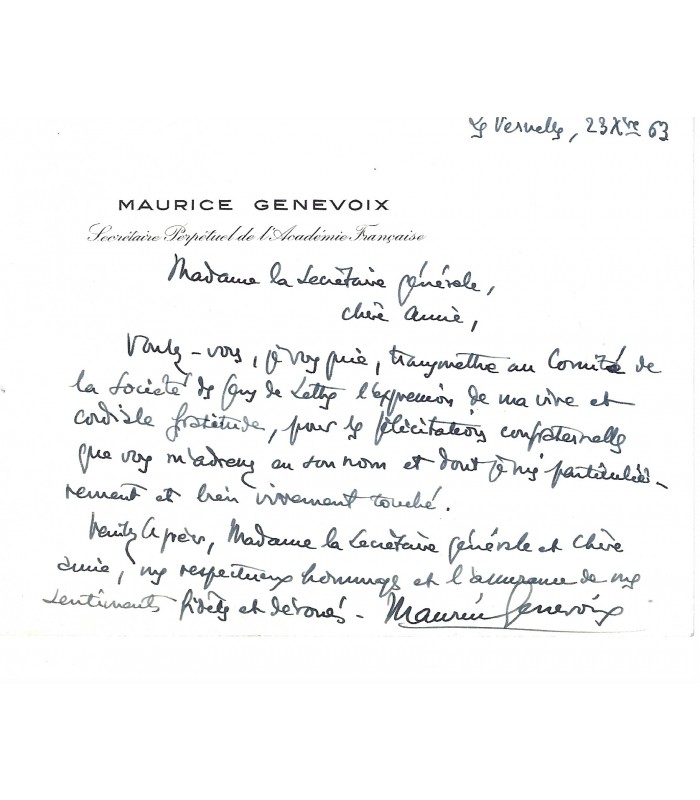 Les Vernelles, 23 Xbre 63
MAURICE GENEVOIX
Secrétaire Perpétuel de l'Académie Française
Madame la Secrétaire générale,
chère amie,
Voulez-vous, je vous prie, transmettre au Comité de
la Société des Gens de Lettres l'expression de ma vive et
cordiale gratitude, pour les félicitations confraternelles
que vous m'adressez en son nom et dont je suis particuliè-
rement et bien vivement touché.
Veuillez agréer, Madame la Secrétaire générale et chère
amie, mes respectueux hommages et l'assurance de mes
sentiments fidèles et dévoués -
Maurice Genevoix